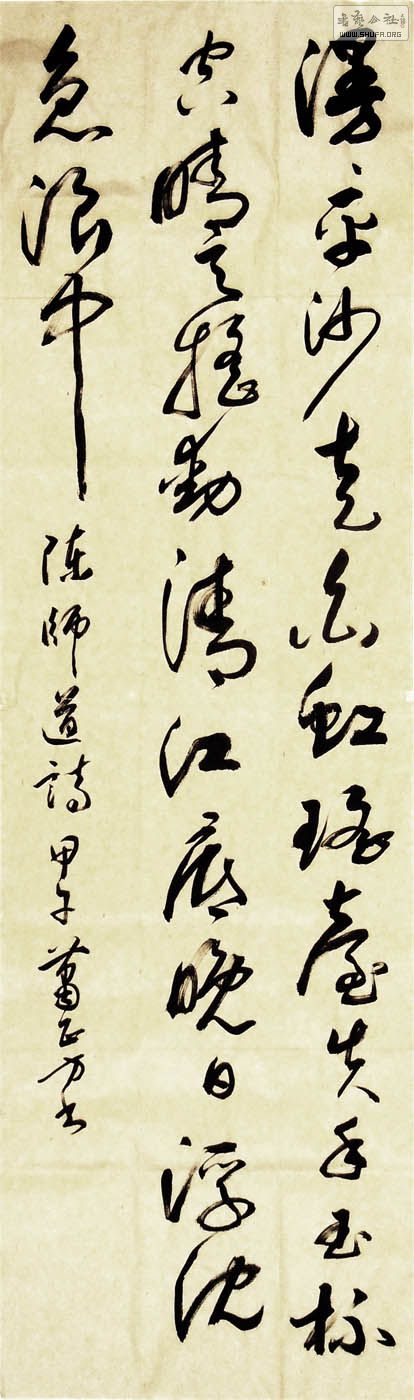 漫〻平沙走白虹瑤臺失手玉杯
空晴天搖動清江底晚日浮沈
急浪中 陳師道詩 甲午 蕭正方书
書藝公社
WWW.SHUFA.ORG